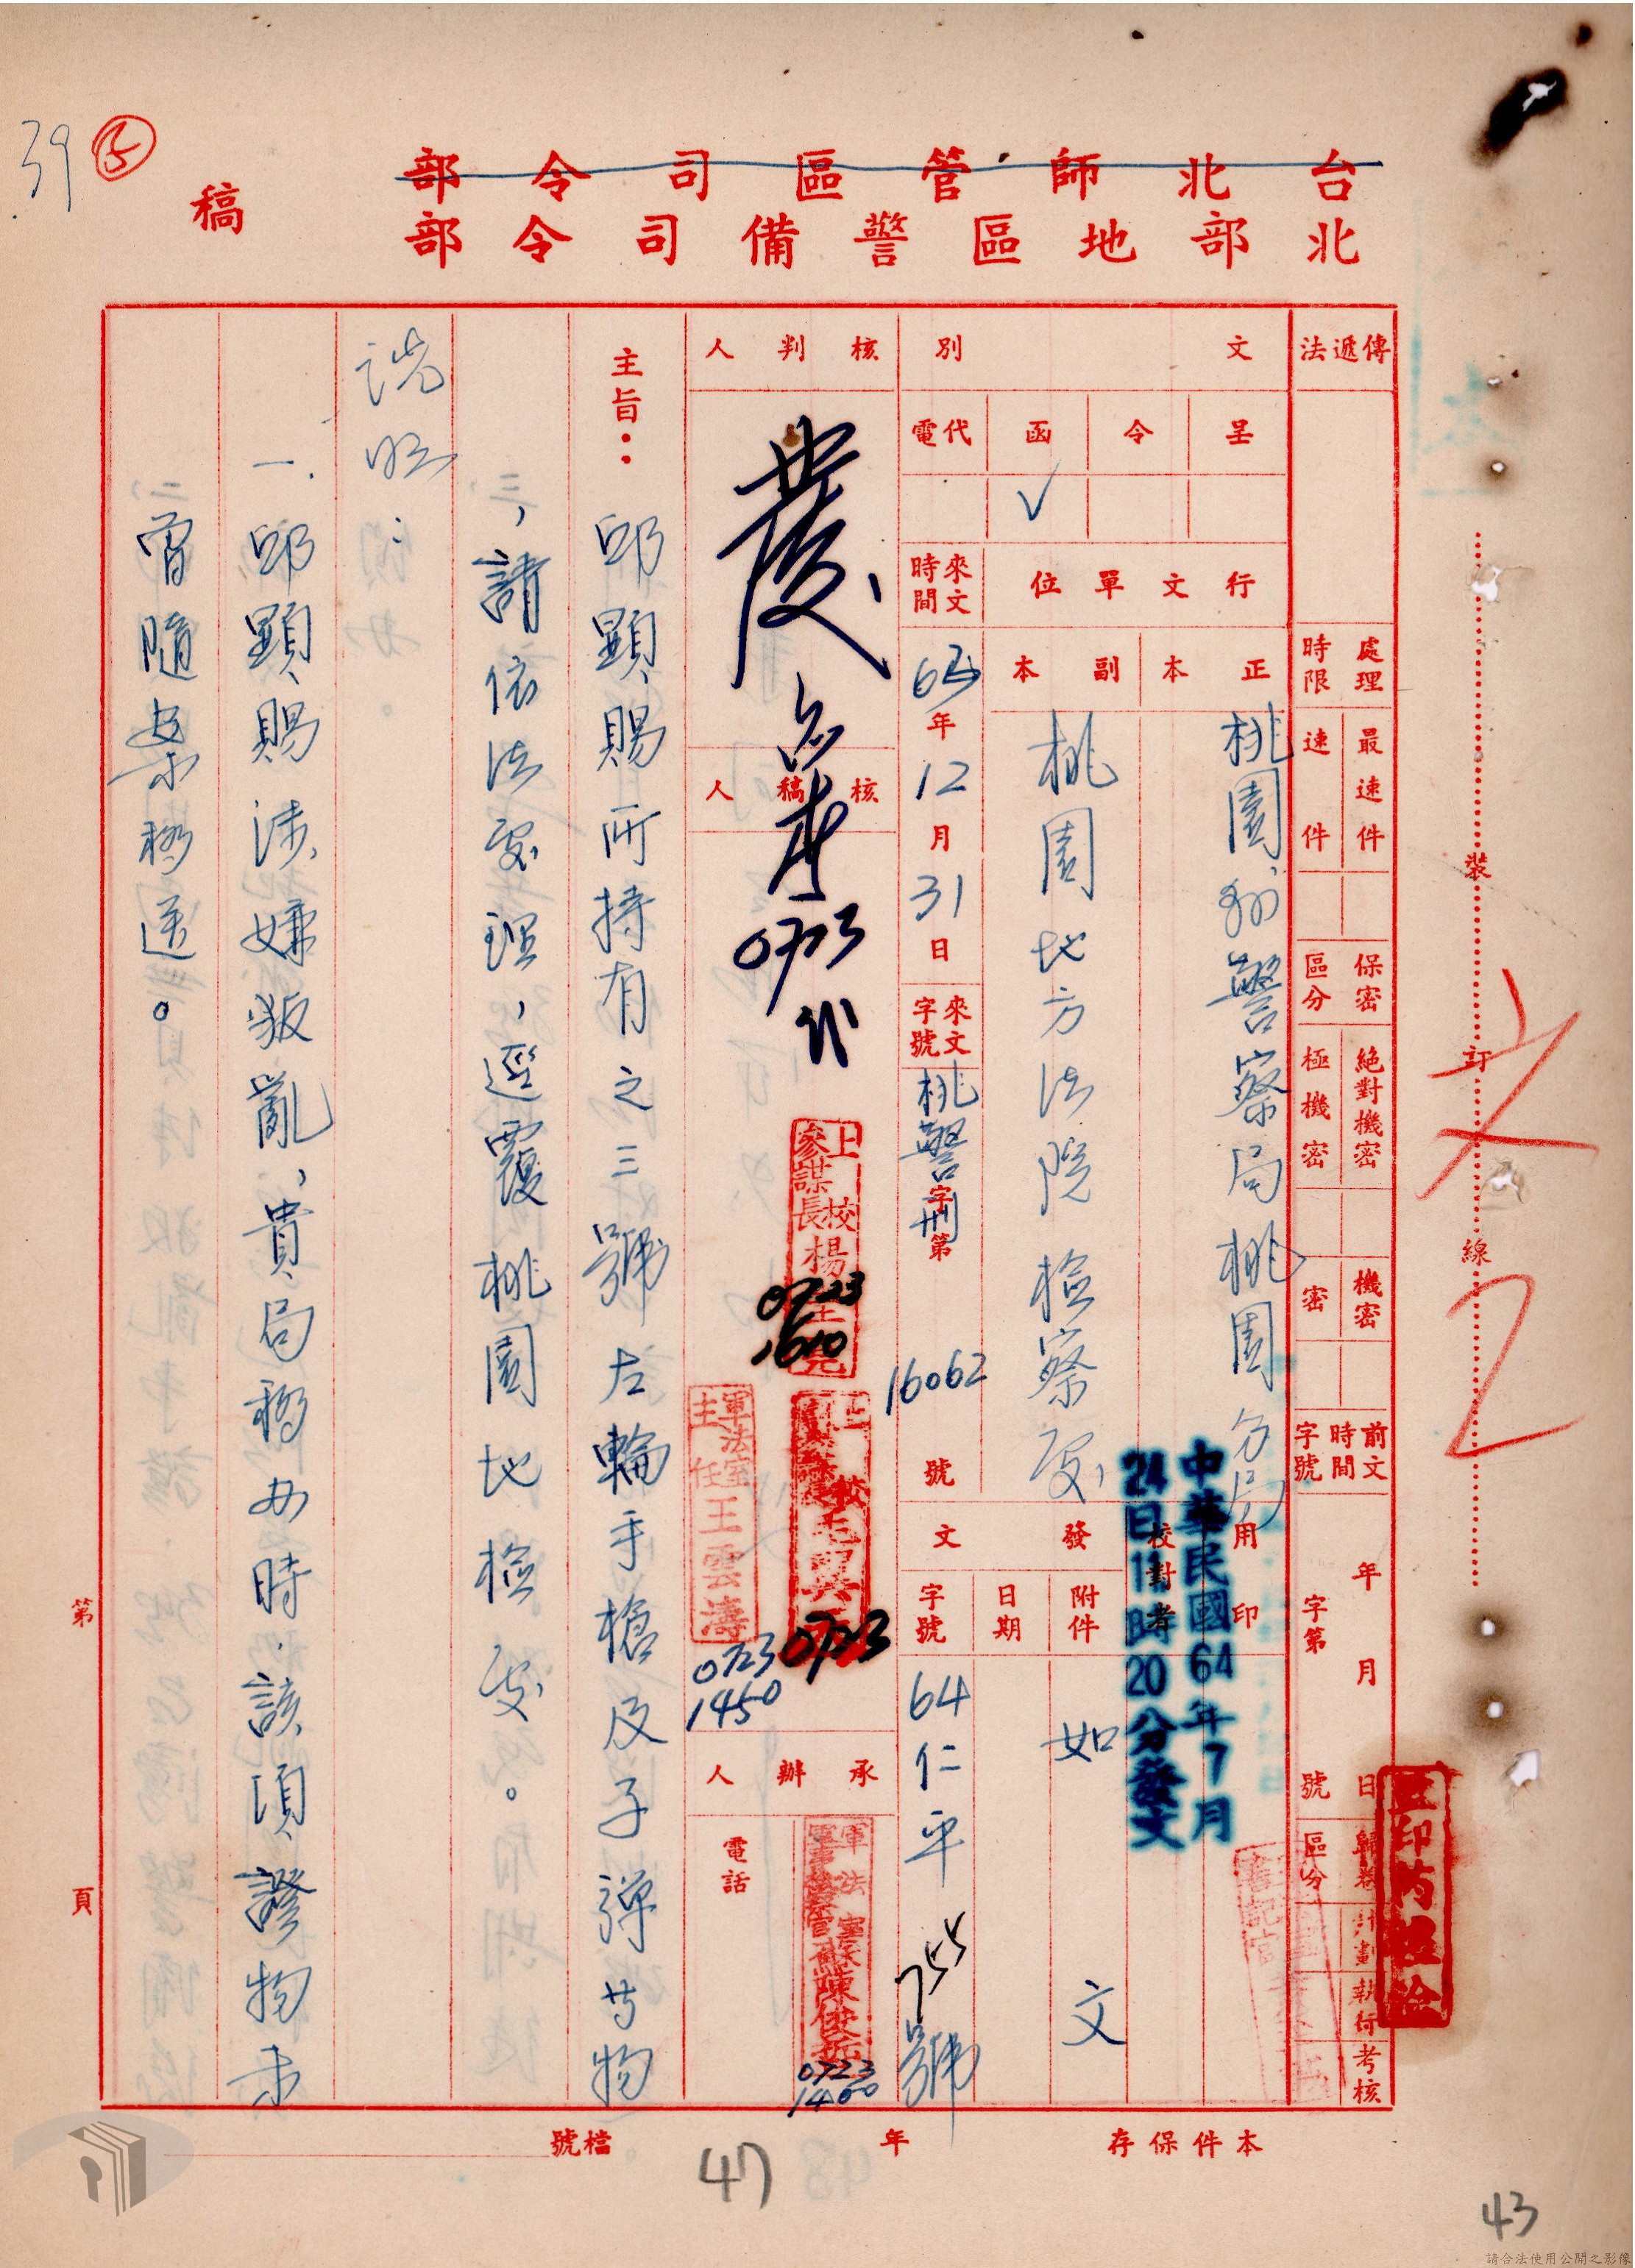 39
台北師管區司令部
北部地區警備司令部
稿
傳遞法
處理時限
最速件
速件
保密區分
絕對機密
極機密
機密
密
前文時間字號
年 月 日
字第 號
歸卷區分
計劃
執行
考核
文別
呈
令
函
代電
✓
行文單位
正本
副本
桃園縣警察局桃園分局
桃園地方法院檢察處
來文時間
63年12月31日
來文字號
桃警刑字第16062號
用印
校對者
中華民國64年7月
24日11時20分發文
發文
附件
如文
日期
字號
64仁平755號
核判人
發
0723
代
核稿人
上校參謀長楊
0723
1610
0723
軍法室主任王雲濤
0723
1450
承辦人
軍法室
0723
1400
電話
主旨：
邱顯賜所持有之三號左輪手槍及子彈等物
三，請依法處理，逕覆桃園地檢處。
說明：
一、邱顯賜涉嫌叛亂，貴局移办時，該項證物未
曾隨案移送。
裝
訂
線
第 頁
本件保存 年
檔號
47
43
請合法使用公開之影像